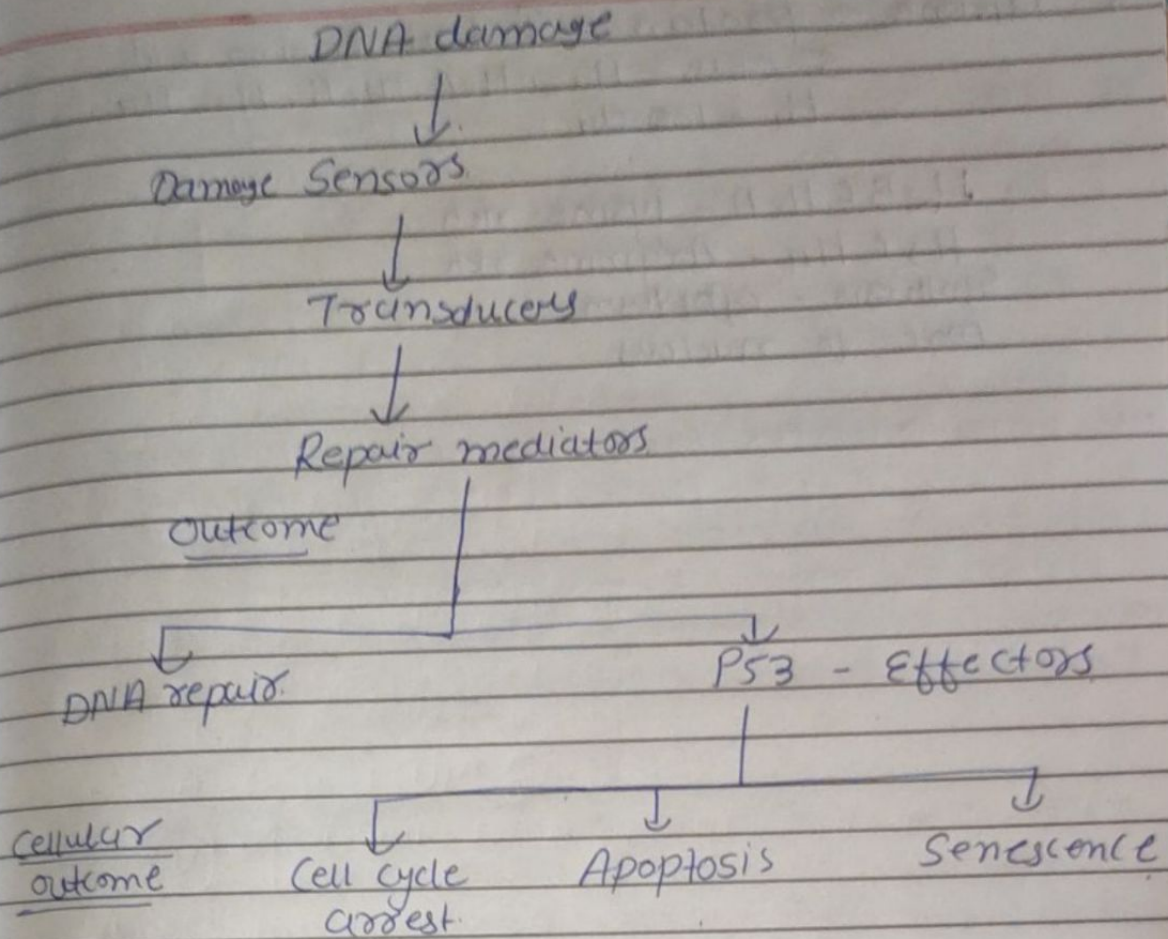 DNA damage
Damage Sensors
Transducers
Repair mediators
Outcome
DNA repair.
P53 - Effectors
Cellular
outcome
Cell cycle
arrest.
Apoptosis
Senescence